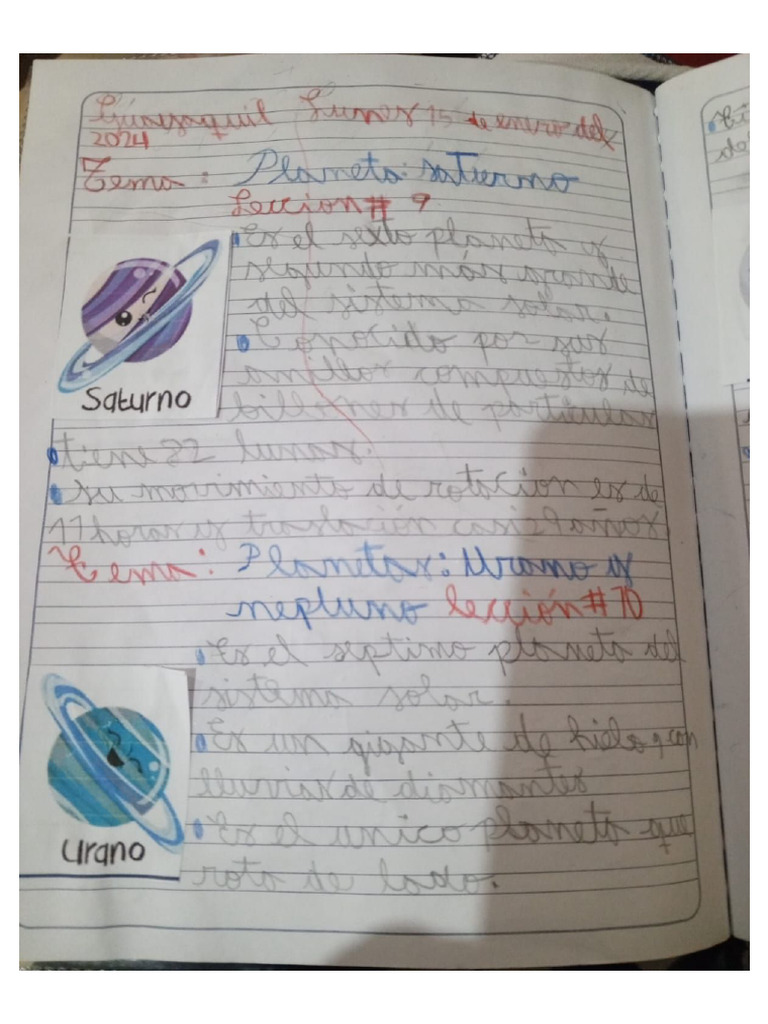 Guayaquil Lunes 15 de enero del
2024
Tema: Planeta: saturno
Leccion # 9
Es el sexto planeta y
segundo más grande
del sistema solar.
Conocido por sus
anillos compuestos de
billones de particulas
Saturno
tiene 82 lunas.
su movimiento de rotacion es de
11 horas y traslación casi 29 años.
Tema: Planetas: Urano y
neptuno lección # 10
Es el septimo planeta del
sistema solar.
Es un gigante de hielo, con
lluvias de diamantes
Es el unico planeta que
rota de lado.
Urano